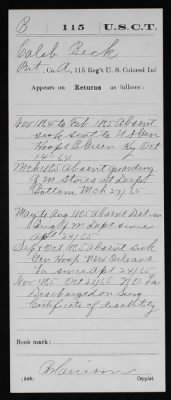 B 115 U.S.C.T.
Caleb Beck
Pvt, Co. A, 115 Reg't U. S. Colored Inf
Appears on Returns as follows:
Nov 1864 to Feb. 1865 Absent
sick sent to U.S. Gen
Hosp'l B. Green Ky Oct
14-64
Mch 1865 Absent guarding
Q.M. Stores at Deep
Bottom Mch 27/65
May to Aug 1865 Absent Det in
Brig Q.M. Dept since
Apl 24/65
Sept Oct 1865 Absent sick
Gen Hosp. New Orleans
La since Apl 24/65
Nov 1865 Oct 25/65 N.O. La
Discharged on Surg
Certificate of disability
Book mark:
Harrison
(546) Copyist.